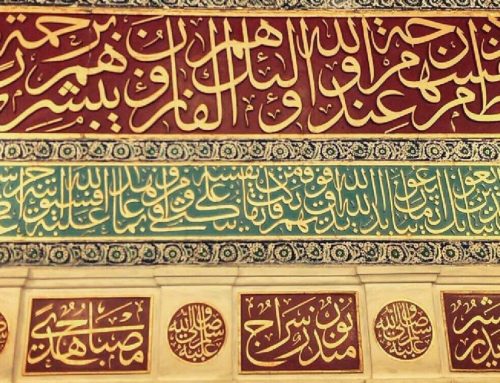 وأنفسهم أعظم درجة عند الله وأولئك هم الفائزون يبشرهم ربهم برحمة
يبايعونك إنما يبايعون الله يد الله فوق أيديهم فمن نكث فإنما ينكث على نفسه ومن أوفى بما عاهد عليه الله فسيؤتيه أجرا
صلى الله عليه وسلم منذر نور سراج صلى الله عليه وسلم مصباح هدى